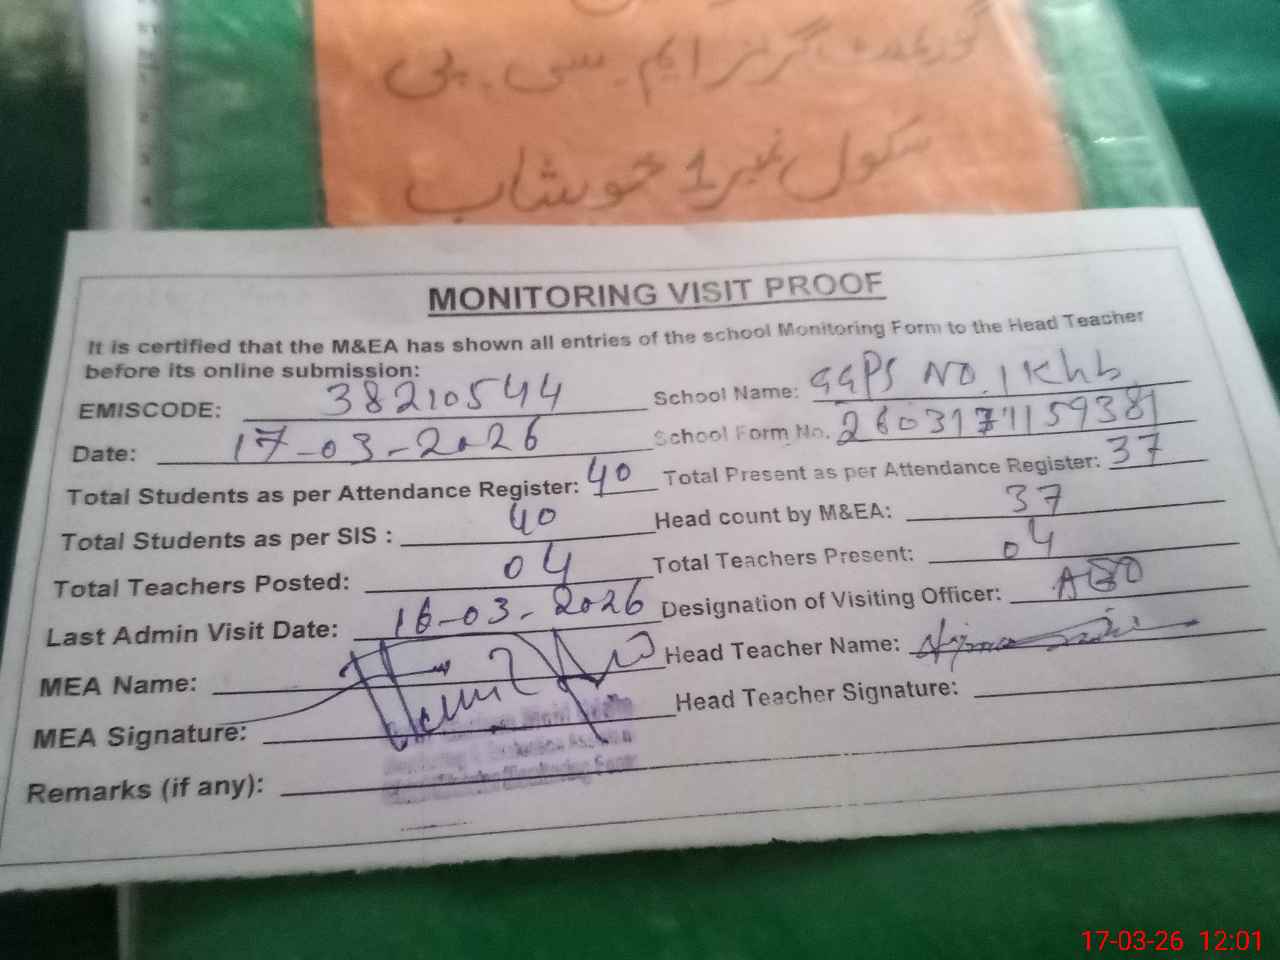 گورنمنٹ گرلز ایم۔سی۔پی
سکول نمبر 1 خوشاب
MONITORING VISIT PROOF
It is certified that the M&EA has shown all entries of the school Monitoring Form to the Head Teacher
before its online submission:
EMISCODE: 38210544 School Name: GGPS NO.1 Khb
Date: 17-03-2026 School Form No. 2603171159381
Total Students as per Attendance Register: 40 Total Present as per Attendance Register: 37
Total Students as per SIS : 40 Head count by M&EA: 37
Total Teachers Posted: 04 Total Teachers Present: 04
Last Admin Visit Date: 16-03-2026 Designation of Visiting Officer: AEO
MEA Name: Head Teacher Name:
MEA Signature: Head Teacher Signature:
Remarks (if any):
17-03-26 12:01